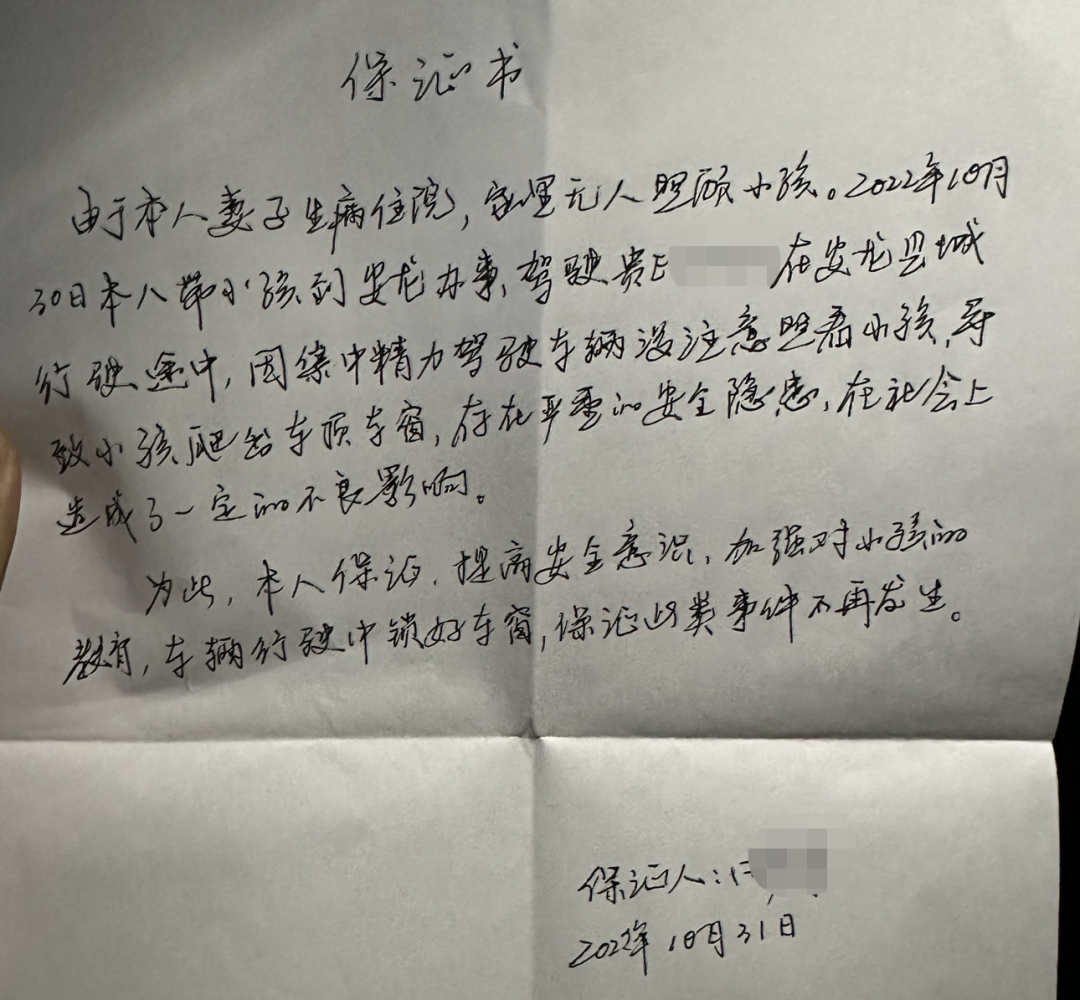 保证书
由于本人妻子生病住院，家里无人照顾小孩。2022年10月
30日本人带小孩到安龙办事，驾驶贵E在安龙县城
行驶途中，因集中精力驾驶车辆没注意照看小孩，导
致小孩爬出车顶车窗，存在严重的安全隐患，在社会上
造成了一定的不良影响。
为此，本人保证，提高安全意识，加强对小孩的
教育，车辆行驶中锁好车窗，保证此类事件不再发生。
保证人：
2022年10月31日